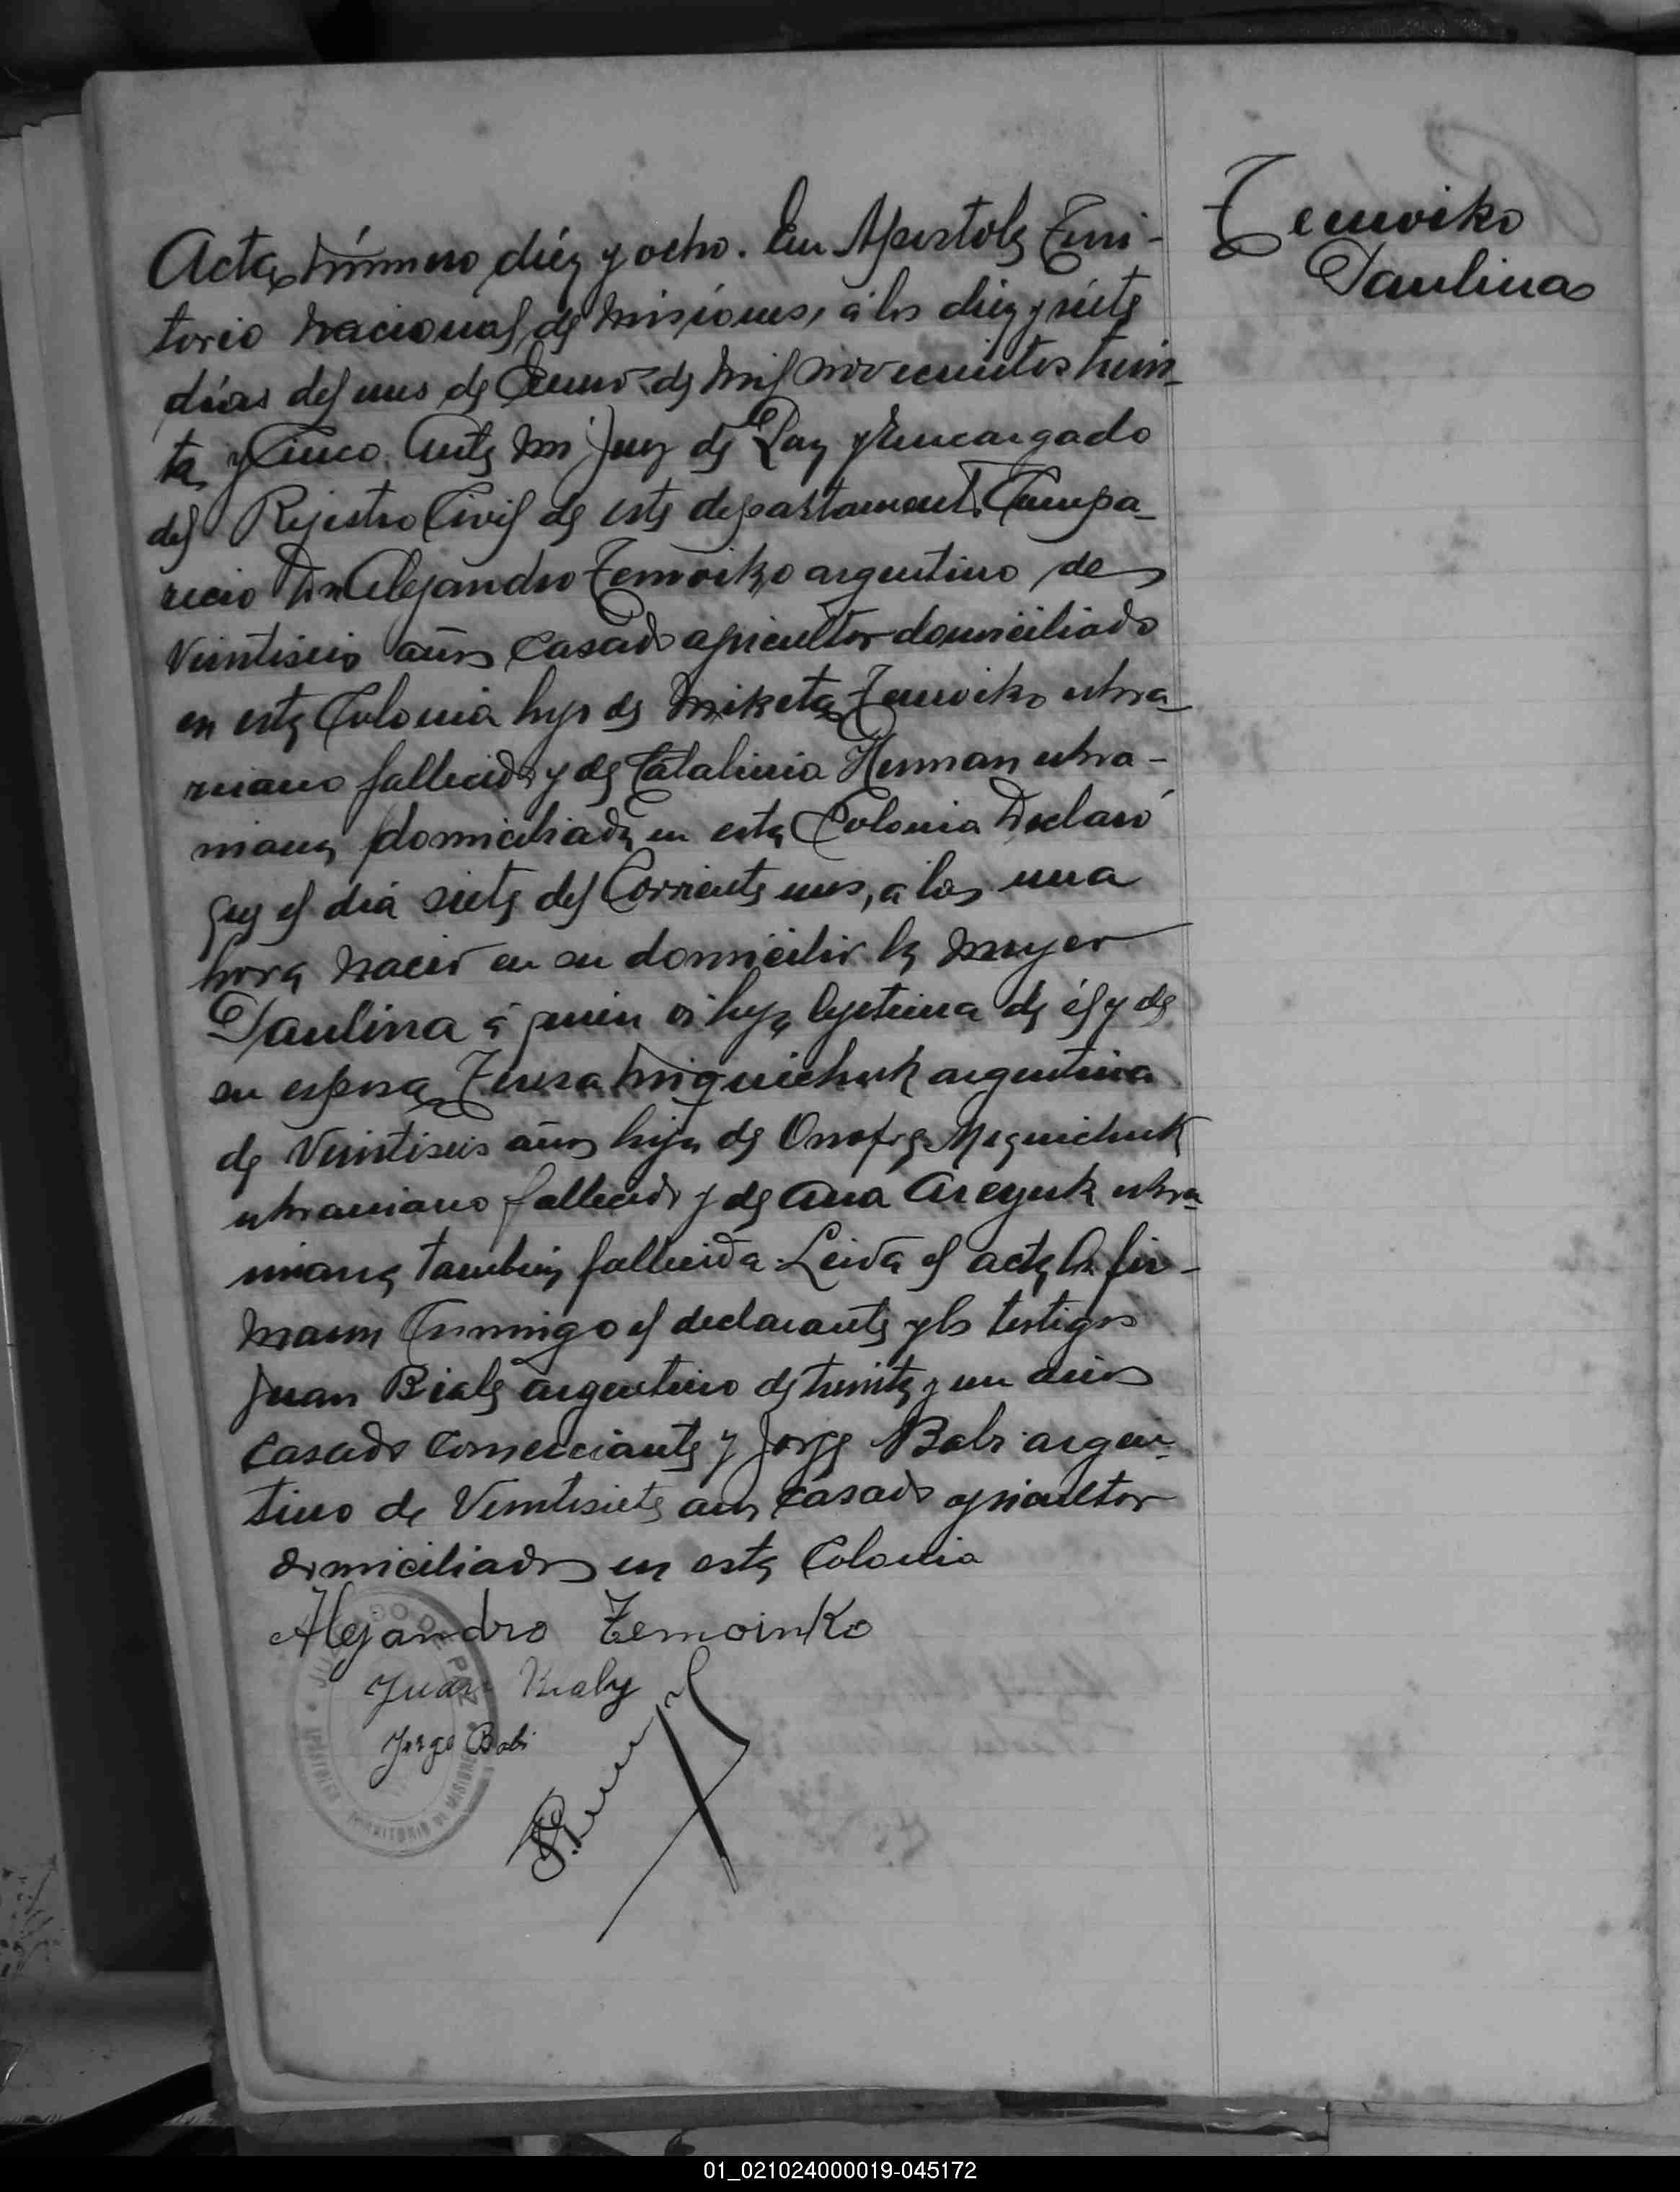 Zemoiko
Paulina
Acta Número diéz y ocho. En Apostoles Terri-
torio Nacional de Misiones, á los diez y siete
días del mes de Enero de Mil Novecientos trein-
ta y Cinco. Ante Mi Juez de Paz y Encargado
del Rejistro Civil de este departamento Compa-
recio Dn Alejandro Zemoiko argentino de
Veintiseis años Casado agricultor domiciliado
en esta Colonia hijo de Miketa Zemoiko ukra-
niano fallecido y de Catalina Herman ukra-
niana domiciliada en esta Colonia Declaró
que el día siete del Corriente mes, a las una
hora Nació en su domicilio la Mujer
Paulina á quien es hija lejitima de él y de
su esposa Teresa Miguichuk argentina
de Veintiseis años hija de Onofre Miguichuk
ukraniano fallecido y de Ana Areyuk ukra-
niana también fallecida. Leida el acta la fir-
maron Conmigo el declarante y los testigos
Juan Biale argentino de treinta y un años
Casado Comerciante y Jorge Babi argen-
tino de Veintisiete años Casado agricultor
domiciliados en esta Colonia
Alejandro Zemoinko
Juan Bialy
Jorge Babi
JUZGADO DE PAZ
APOSTOLES TERRITORIO DE MISIONES
01_021024000019-045172